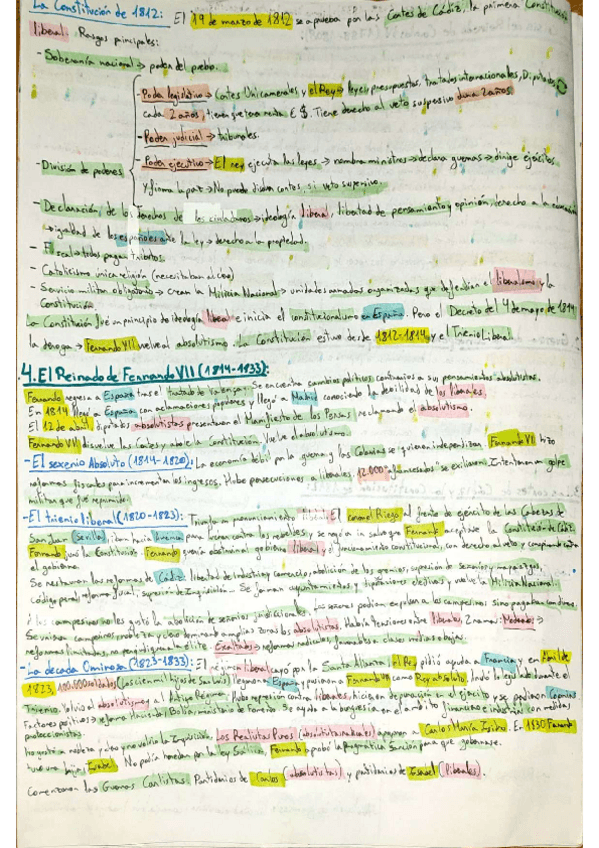 La Constitución de 1812: El 19 de marzo de 1812 se aprueba por las Cortes de Cádiz, la primera Constitución
liberal. Rasgos principales:
- Soberanía nacional → poder del pueblo.
- Poder legislativo → Cortes Unicamerales y el Rey → leyes, presupuestos, tratados internacionales, Diputados,
cada 2 años, tienen que tener renta € $. Tiene derecho al veto suspensivo dura 2 años.
- Poder judicial → tribunales.
- División de poderes
- Poder ejecutivo → El rey ejecuta las leyes → nombra ministros → declara guerras → dirige ejércitos
y firma la paz → No puede disolver cortes, si veto suspensivo.
- Declaración de los derechos de los ciudadanos → ideología liberal, libertad de pensamiento y opinión, derecho a la educación
→ igualdad de los españoles ante la ley → derecho a la propiedad.
- Fiscal → todos pagan tributos.
- Catolicismo única religión (necesitaban al clero)
- Servicio militar obligatorio → crean la Milicia Nacional → unidades armadas organizadas que defendían el liberalismo y la
Constitución
La Constitución fue un principio de ideología liberal e inicia el constitucionalismo en España. Pero el Decreto del 4 de mayo de 1814
la deroga → Fernando VII vuelve al absolutismo. La Constitución estuvo desde 1812-1814 y el Trienio Liberal.
4. El Reinado de Fernando VII (1814-1833):
Fernando regresa a España tras el tratado de Valençay. Se encuentra cambios políticos contrarios a sus pensamientos absolutistas.
En 1814 llegó a España con aclamaciones populares y llegó a Madrid conociendo la debilidad de los liberales.
El 12 de abril diputados absolutistas presentaron el Manifiesto de los Persas reclamando el absolutismo.
Fernando VII disuelve las Cortes y abole la Constitución. Vuelve el absolutismo.
- El sexenio Absoluto (1814-1820): La economía débil por la guerra y las Colonias se quieren independizar. Fernando VII hizo
reformas fiscales para incrementar los ingresos. Hubo persecuciones a liberales, 12.000 afrancesados se exiliaron. Intentaron un golpe
militar que fue reprimido.
- El trienio liberal (1820-1823): Triunfa un pronunciamiento liberal. El coronel Riego al frente de ejército de las Cabezas de
San Juan (Sevilla), iban hacia América para luchar contra los rebeldes, y se negó
Fernando aceptar la Constitución de Cádiz.
Fernando juró la Constitución. Fernando
gobierno liberal y el funcionamiento constitucional, con derecho al veto y
el gobierno.
Se restauran las reformas de Cádiz: libertad de industria y comercio, abolición de los gremios, supresión de señoríos y mayorazgos,
código penal, reforma fiscal, supresión de Inquisición... Se forman ayuntamientos y diputaciones electivas y vuelve la Milicia Nacional.
A los campesinos no les gustó la abolición de señoríos jurisdiccionales. Los señores podían expulsar a los campesinos si no pagaban
Se unieron campesinos, nobleza y clero
los absolutistas. Habría tensiones entre liberales, 2 ramas: Moderados →
reformas limitadas, no perjudique a la élite. Exaltados → reformas radicales, favorables a clases medias y bajas.
- La década Ominosa (1823-1833): El régimen liberal cayó por la Santa Alianza, el Rey pidió ayuda a Francia y en Abril de
1823, 100.000 soldados (Los cien mil hijos de San Luis) llegaron a España y pusieron a Fernando VII como Rey absoluto,
durante el
Trienio. Volvió el absolutismo y al Antiguo Régimen. Hubo represión contra liberales, hicieron depuración en el ejército y se perdieron Colonias
Factores positivos → reforma Hacienda, Bolsa, ministerio de Fomento. Se ayuda a la burguesía en el ámbito financiero e industrial con medidas
proteccionistas.
nobleza y clero y no volvió la Inquisición. Los Realistas Puros (absolutistas radicales) apoyaron a Carlos María Isidro. En 1830 Fernando
tuvo una hija, Isabel. No podía heredar por la ley Sálica, Fernando aprobó la Pragmática Sanción para que gobernase.
Comenzaron las Guerras Carlistas. Partidarios de Carlos (absolutistas) y partidarios de Isabel (liberales).